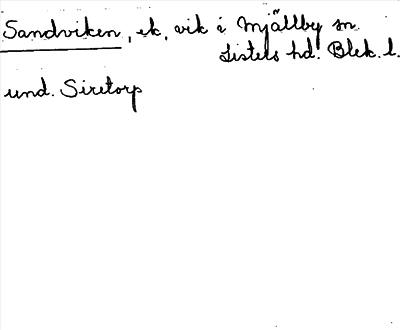 Sandviken, ek, vik i Mjällby sn.
Listers hd. Blek. l.
und. Siretorp